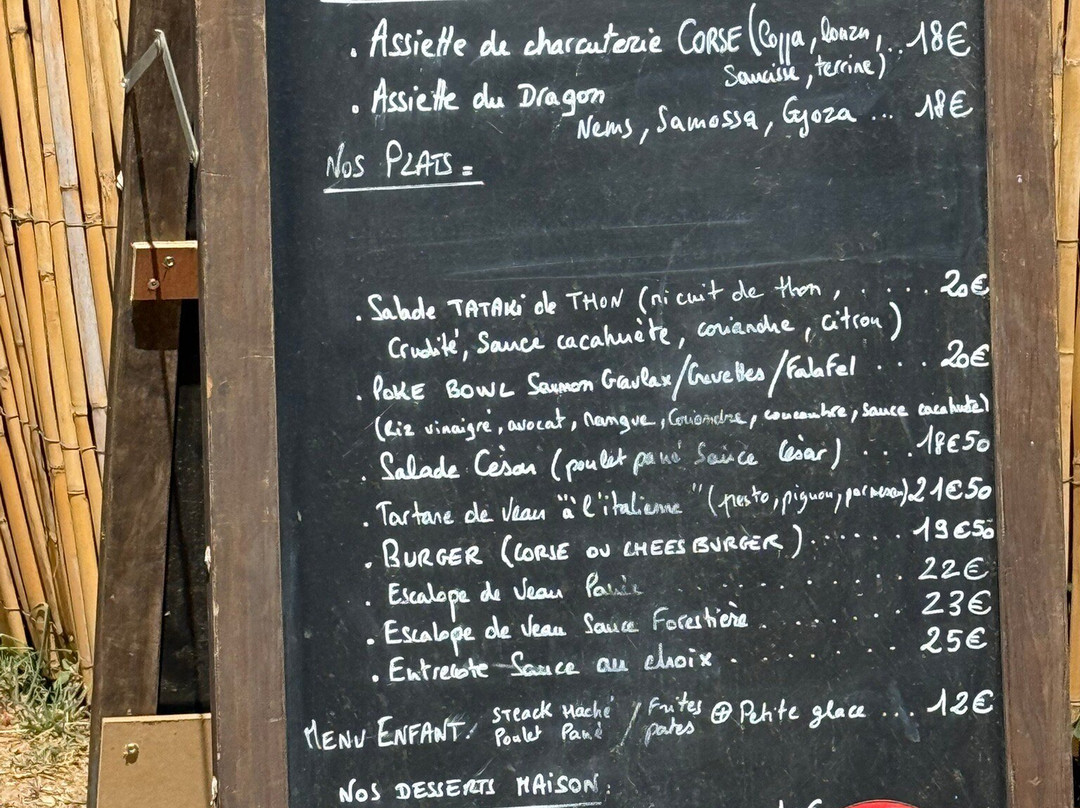 . Assiette de charcuterie CORSE (Coppa, lonzu, .. 18€
Saucisse, terrine)
. Assiette du Dragon
Nems, Samossa, Gyoza ... 18€
NOS PLATS :
. Salade TATAKi de THON (mi cuit de thon, . . . . 20€
Crudité, Sauce cacahuète, coriandre, citron)
. POKE BOWL Saumon Gravlax/Crevettes/Falafel . . . 20€
(Riz vinaigré, avocat, mangue, Coriandre, concombre, sauce cacahuète)
. Salade César (poulet pané Sauce César) . . . 18€50
. Tartare de veau "à l'italienne" (pesto, pignon, parmesan) 21€50
. BURGER (CORSE OU CHEESBURGER) ...... 19€50
. Escalope de veau Panée . . . . . . . . 22€
. Escalope de veau Sauce Forestière . . . . . . . 23€
. Entrecote Sauce au choix . . . . . . . . 25€
MENU ENFANT: STeack Haché / Frites ⊕ Petite glace ... 12€
Poulet Pané / pates
NOS DESSERTS MAiSON :